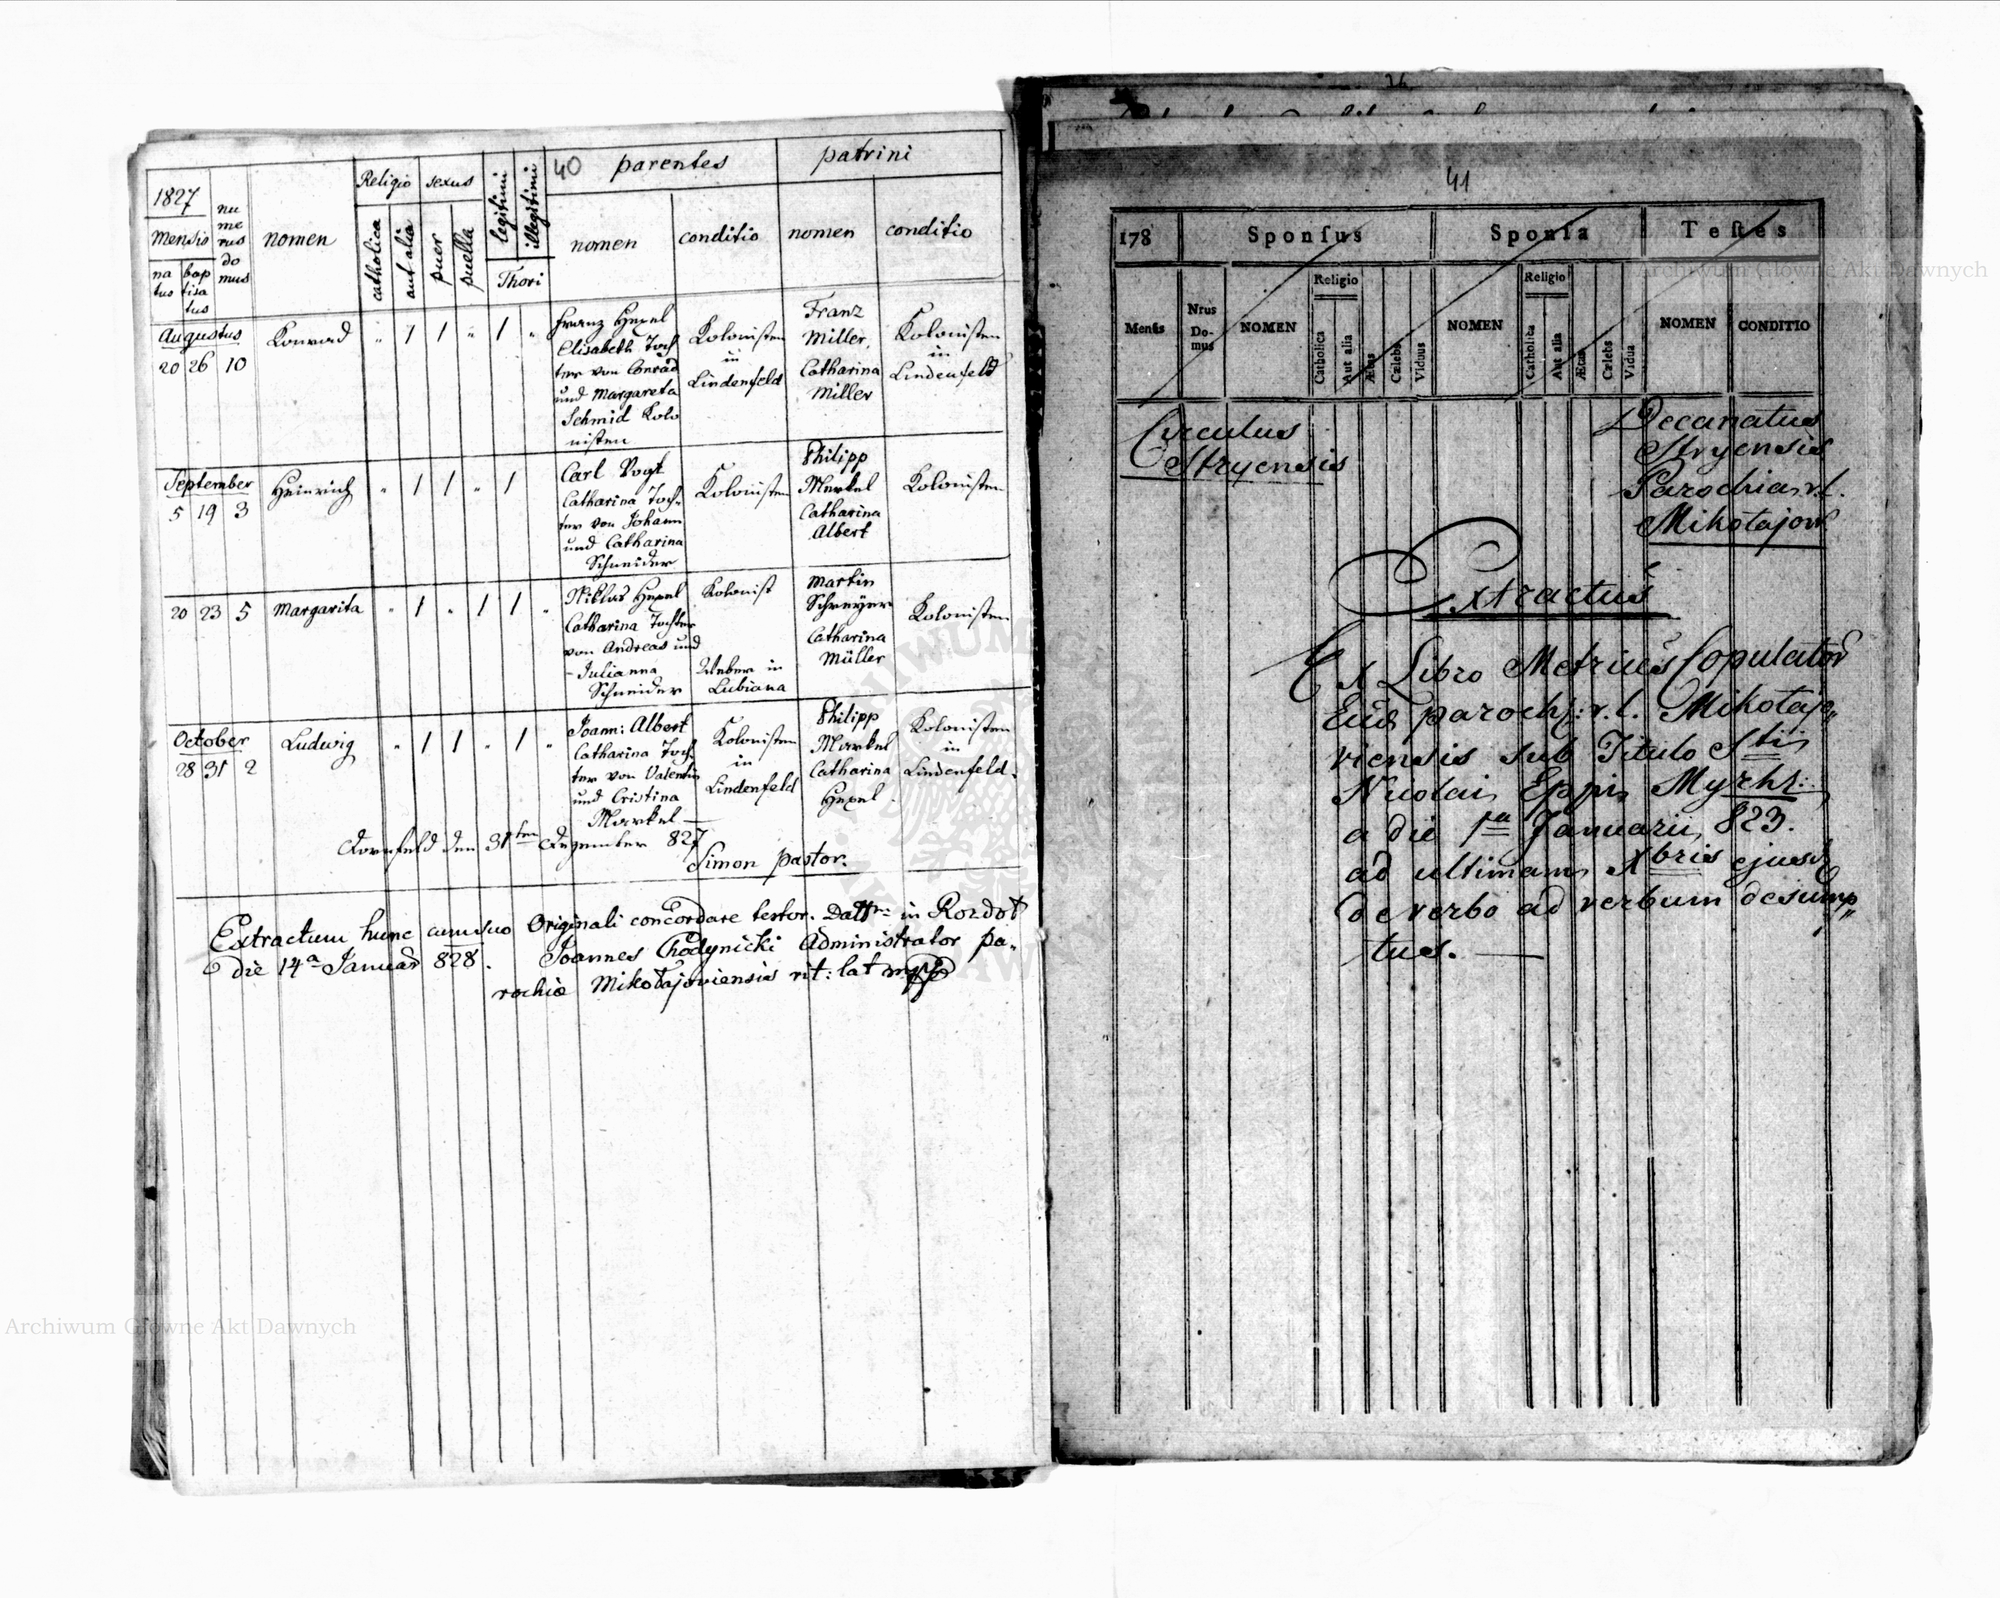 40
parentes
patrini
1827
Religio
sexus
legitimi
illegitimi
nu
me
rus
do
mus
Mensis
nomen
catholica
aut alia
puer
puella
nomen
conditio
nomen
conditio
Thori
na
tus
bap
tisa
tus
Augustus
20 26 10
Konrad
" 1 1 " 1 "
Franz Hexel
Elisabeth Toch
ter von Conrad
und Margareta
Schmid Kolo
nisten
Kolonisten
in
Lindenfeld
Franz
Miller,
Catharina
Miller
Kolonisten
in
Lindenfeld
September
5 19 3
Heinrich
" 1 1 " 1
Carl Vogt
Catharina Toch=
ter von Johann
und Catharina
Schneider
Kolonisten
Philipp
Merkel
Catharina
Albert
Kolonisten
20 23 5
Margarita
" 1 " 1 1 "
Niklas Hexel
Catharina Tochter
von Andreas und
Julianna
Schneider
Kolonist
Weber in
Lubiana
Martin
Schreyer
Catharina
Müller
Kolonisten
October
28 31 2
Ludwig
" 1 1 " 1 "
Joann: Albert
Catharina Toch
ter von Valentin
und Cristina
Markel
Kolonisten
in
Lindenfeld
Philipp
Markel
Catharina
Hexel
Kolonisten
in
Lindenfeld.
Dornfeld den 31ten Dezember 827
Simon pastor.
Extractum hunc cum suo Originali concordare testor. Datt: in Rozdoł
die 14a Januar 828. Joannes Chodynicki Administrator pa-
rochiæ Mikołajoviensis rit: lat mpp
41
178
Sponſus
Sponſa
Teſtes
Menſis
Nrus
Do-
mus
NOMEN
Religio
Catholica
Aut alia
Ætas
Cælebs
Viduus
NOMEN
Religio
Catholica
Aut alia
Ætas
Cælebs
Vidua
NOMEN
CONDITIO
Circulus
Stryensis
Decanatus
Stryensis
Parochia r.l.
Mikołajow
Extractus
Ex Libro Metrices Copulator
Eccl: paroch: r.l. Mikołajo„
viensis sub Titulo Sti
Nicolai Eppi Myrhs:
a die 1a Januarii 823.
ad ultimam Xbris ejusd
de verbo ad verbum desump„
tus.
Archiwum Główne Akt Dawnych
Archiwum Główne Akt Dawnych